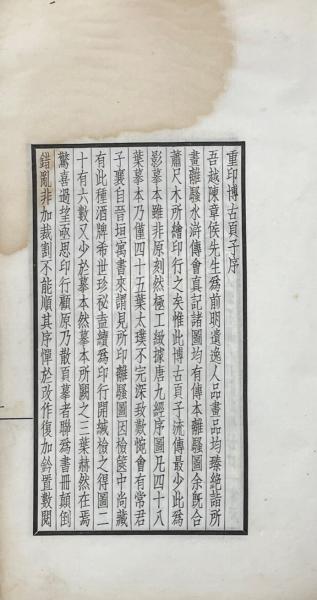 重印博古頁子序
吾越陳章侯先生為前明遺逸人品畫品均臻絕詣所
畫離騷水滸傳會真記諸圖均有傳本離騷圖余既合
蕭尺木所繪印行之矣惟此博古頁子流傳最少此為
影摹本雖非原刻然極工緻據唐九經序圖凡四十八
葉摹本乃僅四十五葉太璞不完深致歎惋會有常君
子襄自晉垣寓書來謂見所印離騷圖因檢篋中尚藏
有此種酒牌希世珍秘盍續為印行開緘檢之得圖二
十有六數又少於摹本然摹本所闕之三葉赫然在焉
驚喜過望亟思印行顧原乃散頁摹者聯為書冊顛倒
錯亂非加裁割不能順其序憚於改作復加鈴置數閱